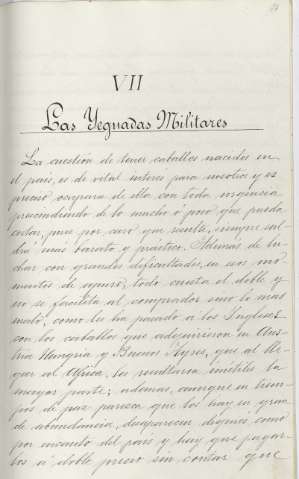 VII
Las Yeguadas Militares
La cuestión de tener caballos nacidos en
el país, es de vital interes para nosotros y es
preciso ocuparse de ella con toda urgencia
prescindiendo de lo mucho o poco que pueda
costar, pues por caro que cueste, siempre sal
drá más barato y práctico. Además de lu
char con grandes dificultades, en esos mo
mentos de apuro, todo cuesta el doble y
no se facilita al comprador sino lo mas
malo, como les ha pasado a los Ingleses
con los caballos que adquirieron en Aus
tria Hungria y Buenos Ayres, que al lle
gar al Africa, les resultaron inútiles la
mayor parte; ademas, aunque en tiem
pos de paz parezca que los hay en gran
de abundancia, desaparecen digamos como
por encanto del país y hay que pagar
los a doble precio sin contar que